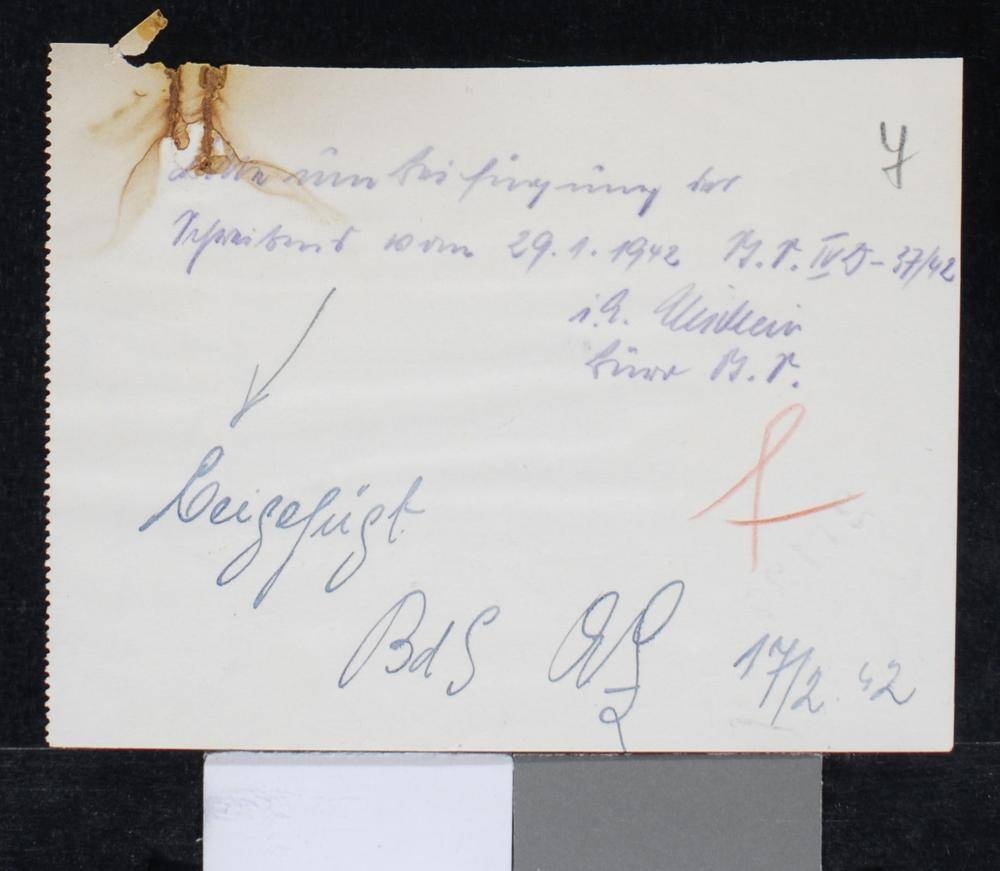 7
Bitte um Beifügung des
Schreibens vom 29.1.1942 B.P. IV D - 37/42
i.A.
Büro B.P.
Beigefügt
BdS 17/2. 42